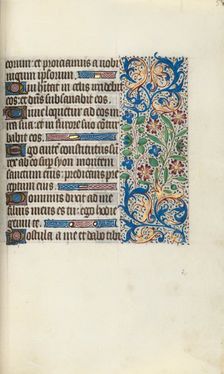 eorum: et proiciamus a nob
iugum ipsorum.
Qui habitat in celis irridebit
eos: et dñs subsannabit eos.
Tunc loquetur ad eos in
ira sua: et in furore suo contur
babit eos.
Ego aute constitutus su
rex ab eo sup syon montem
sanctum eius: predicans pre
ceptum eius.
Dominus dixit ad me
filius meus es tu: ego hodie
genui te.
Postula a me et dabo tibi